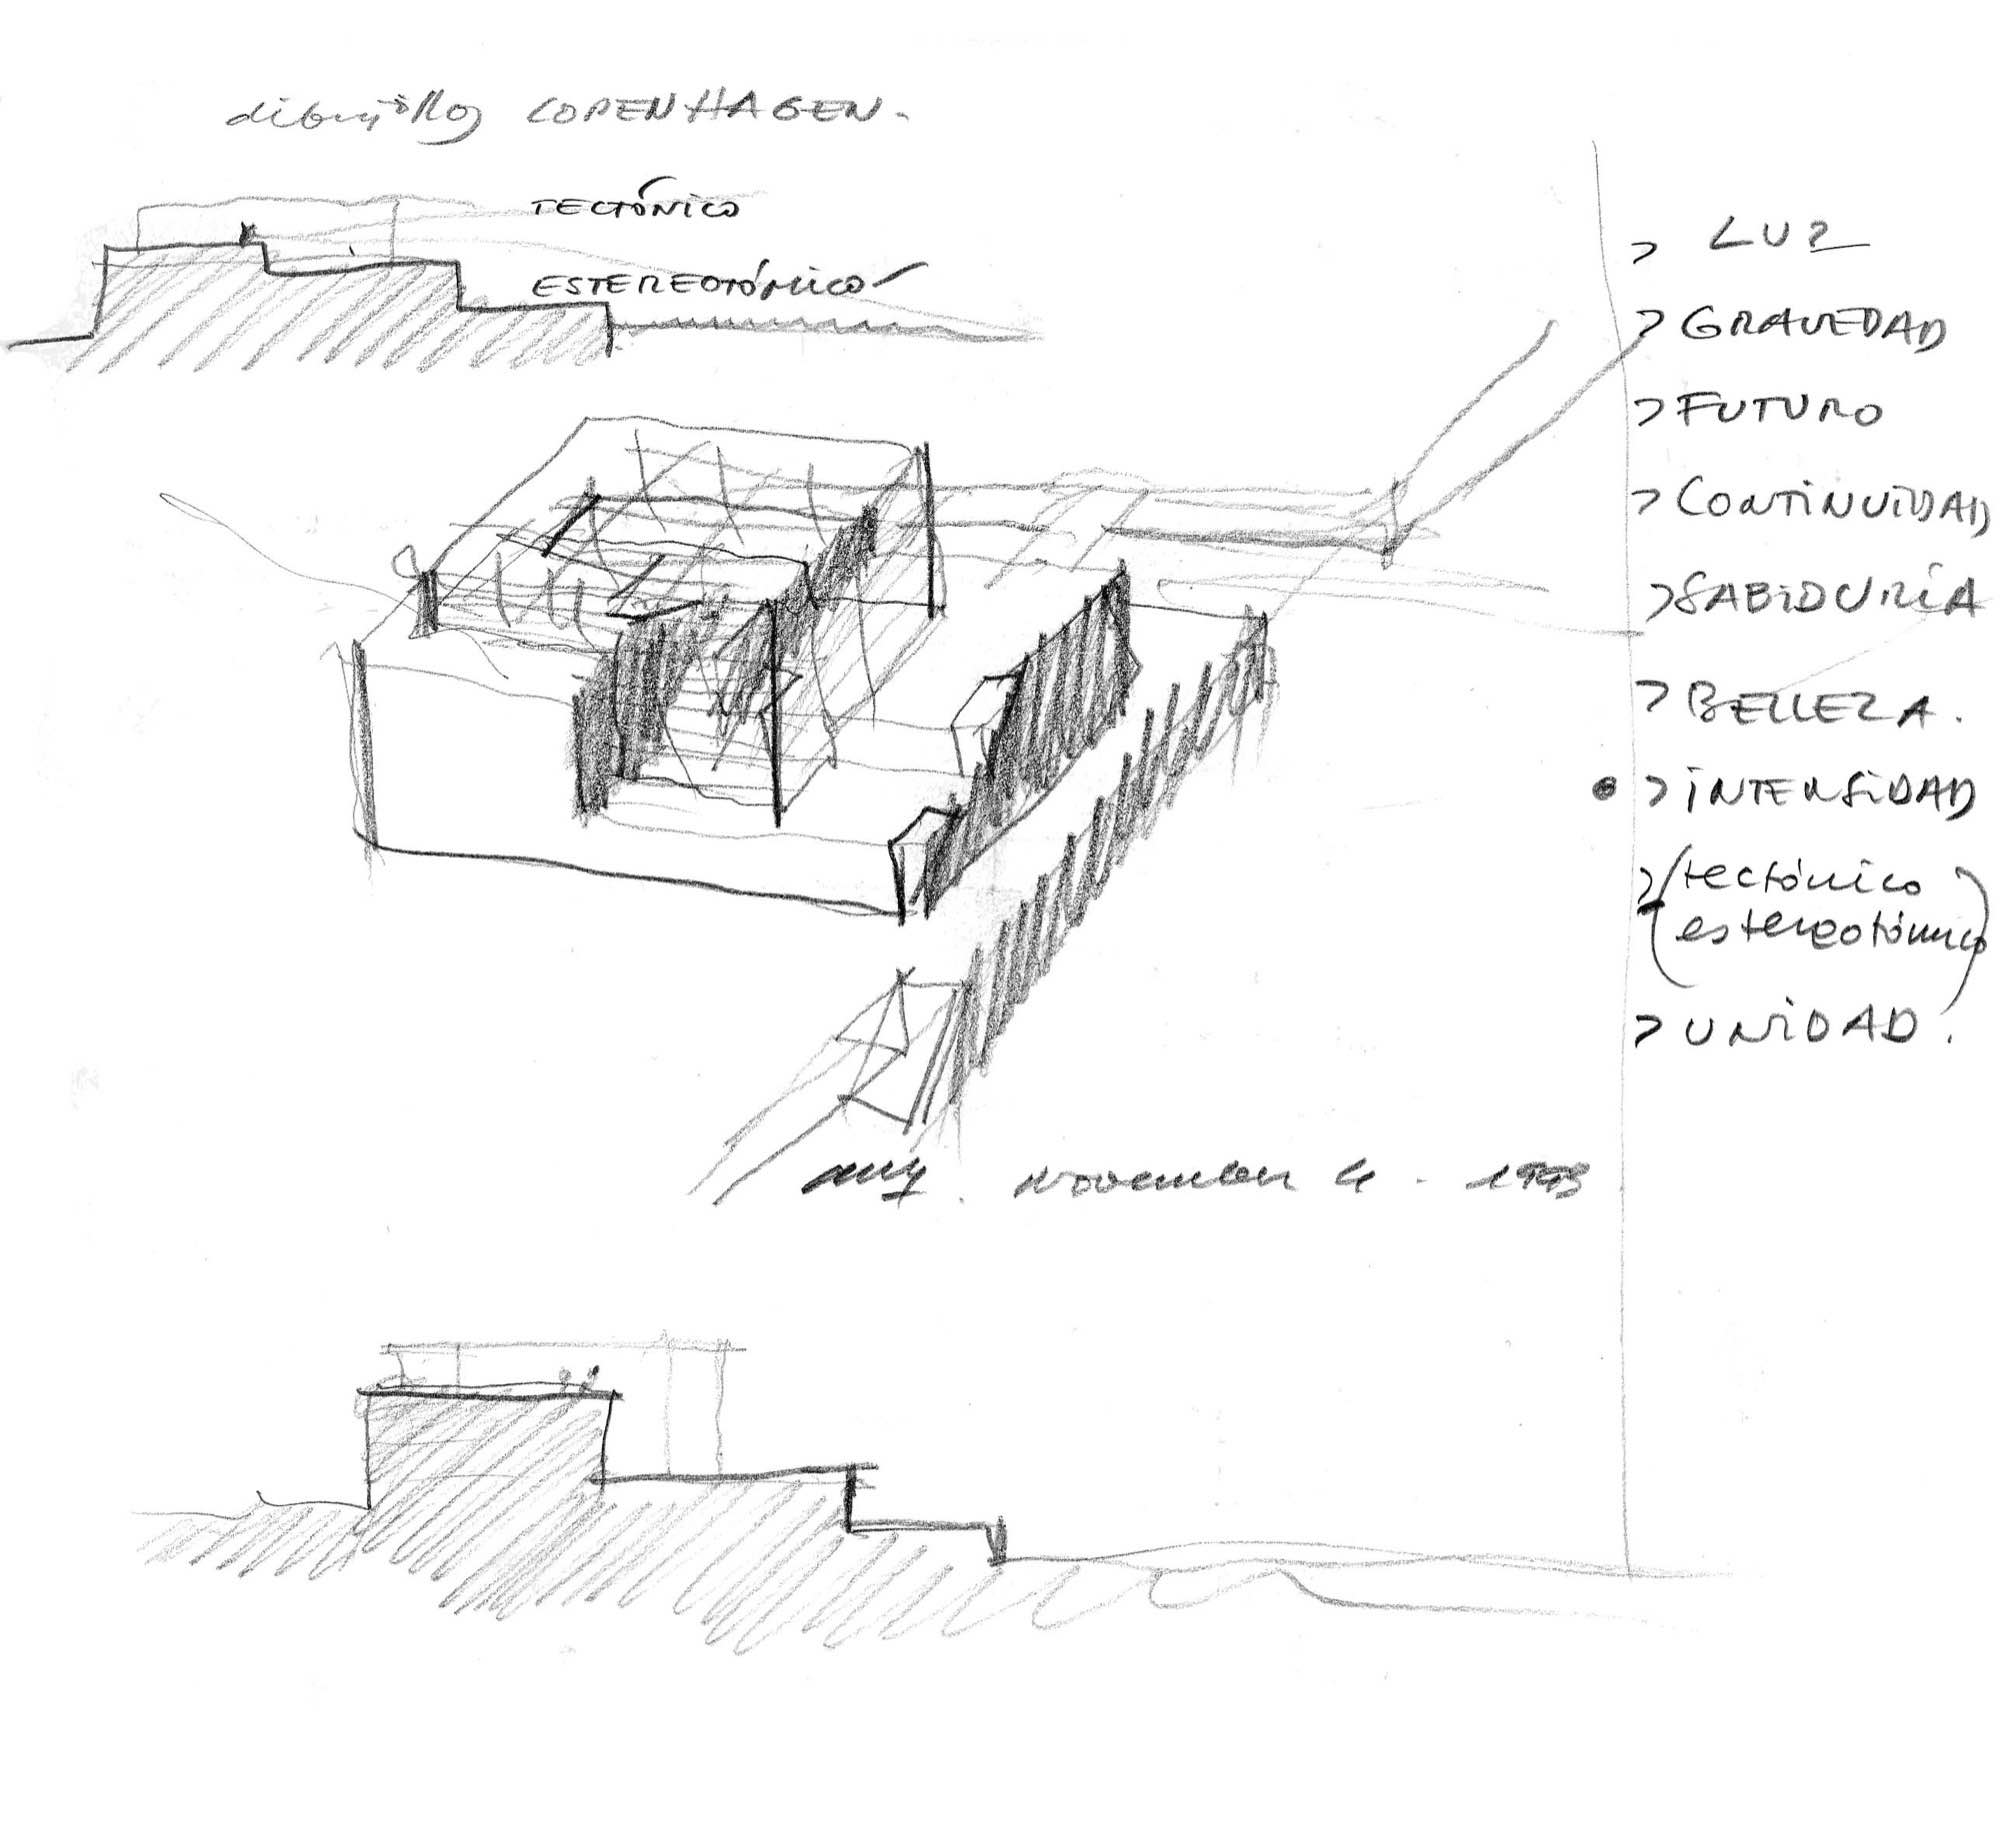 dibujillos COPENHAGEN.
TECTÓNICO
ESTEREOTÓMICO
> LUZ
> GRAVEDAD
> FUTURO
> CONTINUIDAD
> SABIDURÍA
> BELLEZA.
• > INTENSIDAD
> (tectónico
estereotómico)
> UNIDAD.
November 4 - 1993